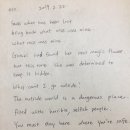 2019. 2. 22
Save what has been lost
bring back what once was mine
what once was mine
Gothel had found her new magic flower
but this time she was determined to
keep it hidden.
Why can't I go outside?
The outside world is a dangerous place
filled with horrible, selfish people.
You must stay here where you're safe